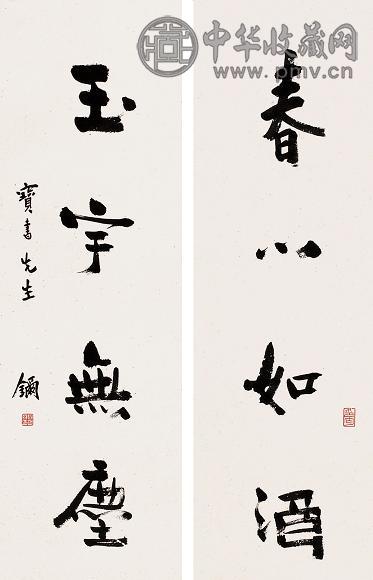 中华收藏网
www.pmv.cn
春心如酒
玉宇無塵
寶書先生